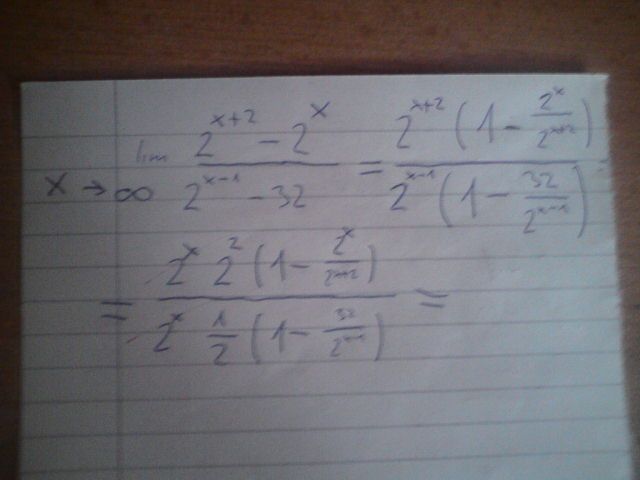 lim x → ∞ (2^(x+2) - 2^x) / (2^(x-1) - 32) = (2^(x+2) (1 - 2^x / 2^(x+2))) / (2^(x-1) (1 - 32 / 2^(x-1))) =
= (2^x 2^2 (1 - 2^x / 2^(x+2))) / (2^x 1/2 (1 - 32 / 2^(x-1))) =